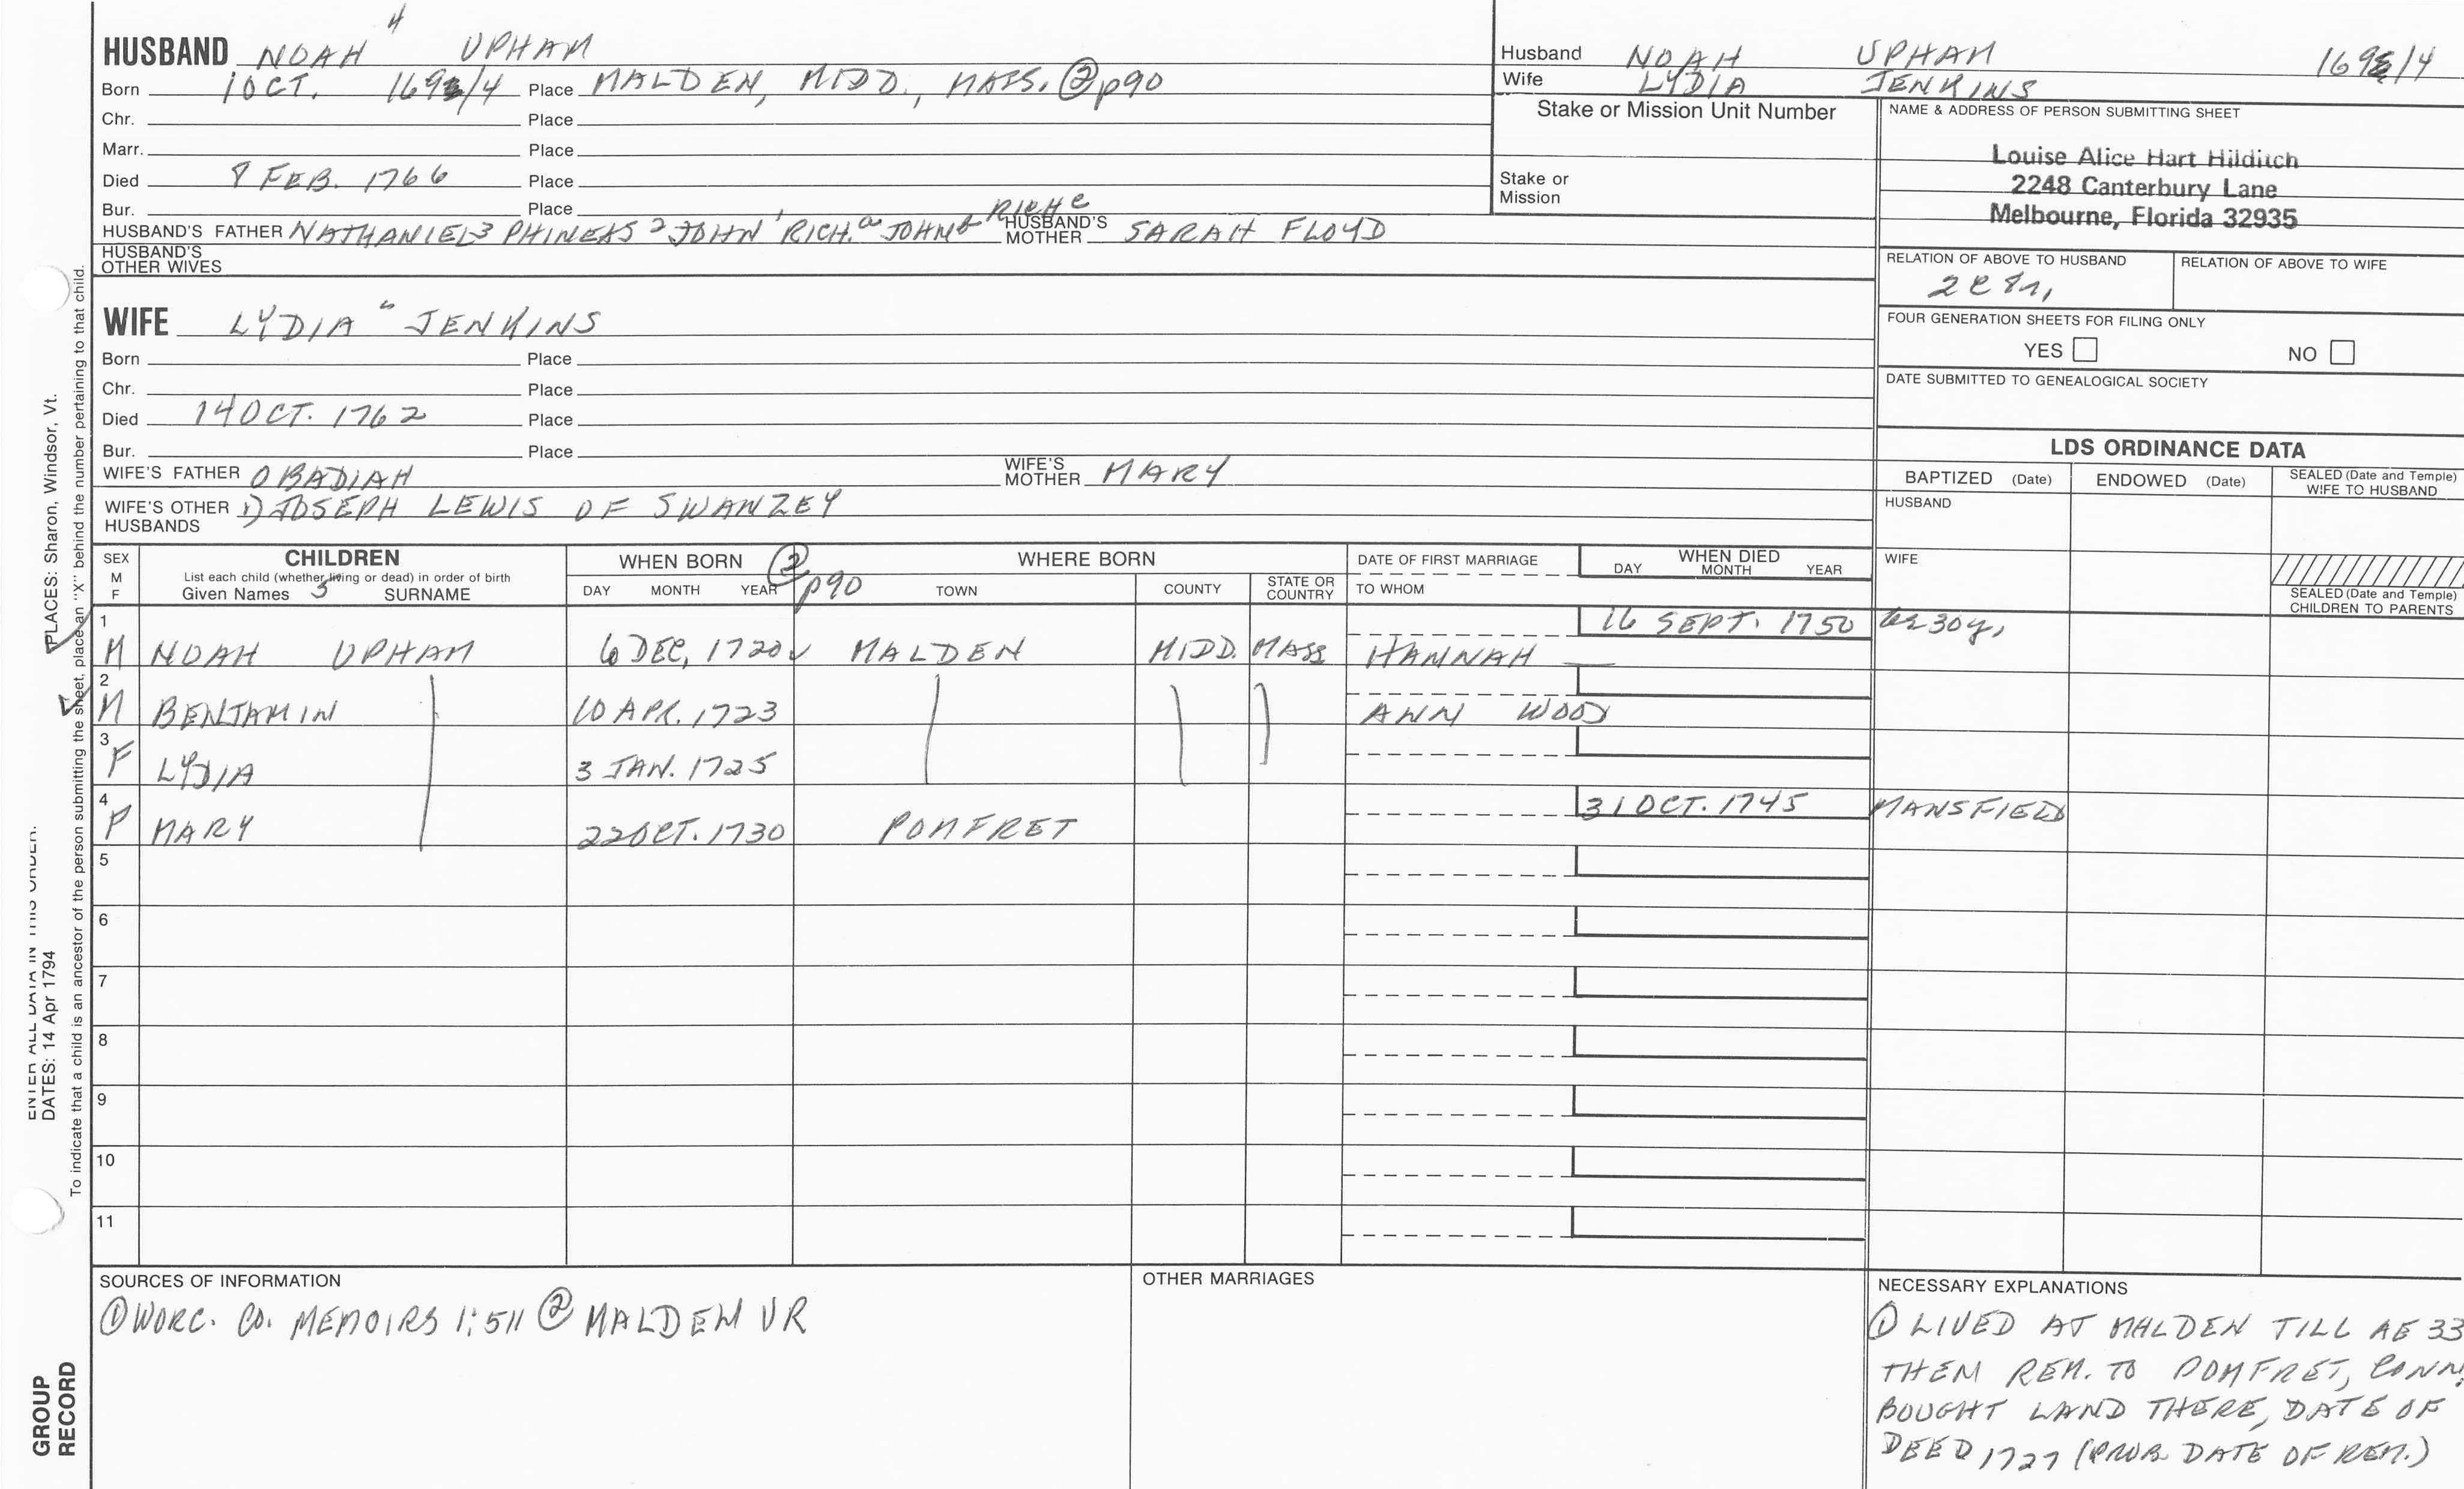 HUSBAND NOAH 4 UPHAM
Born 1 OCT. 169 /4 Place MALDEN, MIDD., MASS. ② p90
Chr. Place
Marr. Place
Died 8 FEB. 1766 Place
Bur. Place
HUSBAND'S FATHER NATHANIEL 3 PHINEAS 2 JOHN 1 RICH. a JOHN b RICH c HUSBAND'S MOTHER SARAH FLOYD
HUSBAND'S OTHER WIVES
Husband NOAH UPHAM 169 /4
Wife LYDIA JENKINS
Stake or Mission Unit Number
Stake or Mission
NAME & ADDRESS OF PERSON SUBMITTING SHEET
Louise Alice Hart Hilditch
2248 Canterbury Lane
Melbourne, Florida 32935
RELATION OF ABOVE TO HUSBAND RELATION OF ABOVE TO WIFE
FOUR GENERATION SHEETS FOR FILING ONLY
YES NO
DATE SUBMITTED TO GENEALOGICAL SOCIETY
WIFE LYDIA " JENKINS
Born Place
Chr. Place
Died 14 OCT. 1762 Place
Bur. Place
WIFE'S FATHER OBADIAH WIFE'S MOTHER MARY
WIFE'S OTHER HUSBANDS 1) JOSEPH LEWIS OF SWANZEY
LDS ORDINANCE DATA
BAPTIZED (Date) ENDOWED (Date) SEALED (Date and Temple) WIFE TO HUSBAND
HUSBAND
WIFE
SEALED (Date and Temple) CHILDREN TO PARENTS
SEX M F
CHILDREN
List each child (whether living or dead) in order of birth
Given Names 5 SURNAME
WHEN BORN ② p90
DAY MONTH YEAR
WHERE BORN
TOWN COUNTY STATE OR COUNTRY
DATE OF FIRST MARRIAGE
TO WHOM
WHEN DIED
DAY MONTH YEAR
1 M NOAH UPHAM 6 DEC, 1720 MALDEN MIDD. MASS HANNAH 16 SEPT. 1750 ae 30y,
2 M BENJAMIN 10 APR. 1723 ANN WOOD
3 F LYDIA 3 JAN. 1725
4 F MARY 22 OCT. 1730 POMFRET 31 OCT. 1745 MANSFIELD
5
6
7
8
9
10
11
SOURCES OF INFORMATION
① WORC. CO. MEMOIRS 1:511 ② MALDEN VR
OTHER MARRIAGES
NECESSARY EXPLANATIONS
① LIVED AT MALDEN TILL AE 33
THEN REM. TO POMFRET, CONN.
BOUGHT LAND THERE, DATE OF
DEED 1727 (PROB. DATE OF REM.)
PLACES: Sharon, Windsor, Vt.
DATES: 14 Apr 1794
To indicate that a child is an ancestor of the person submitting the sheet, place an "X" behind the number pertaining to that child.
GROUP RECORD